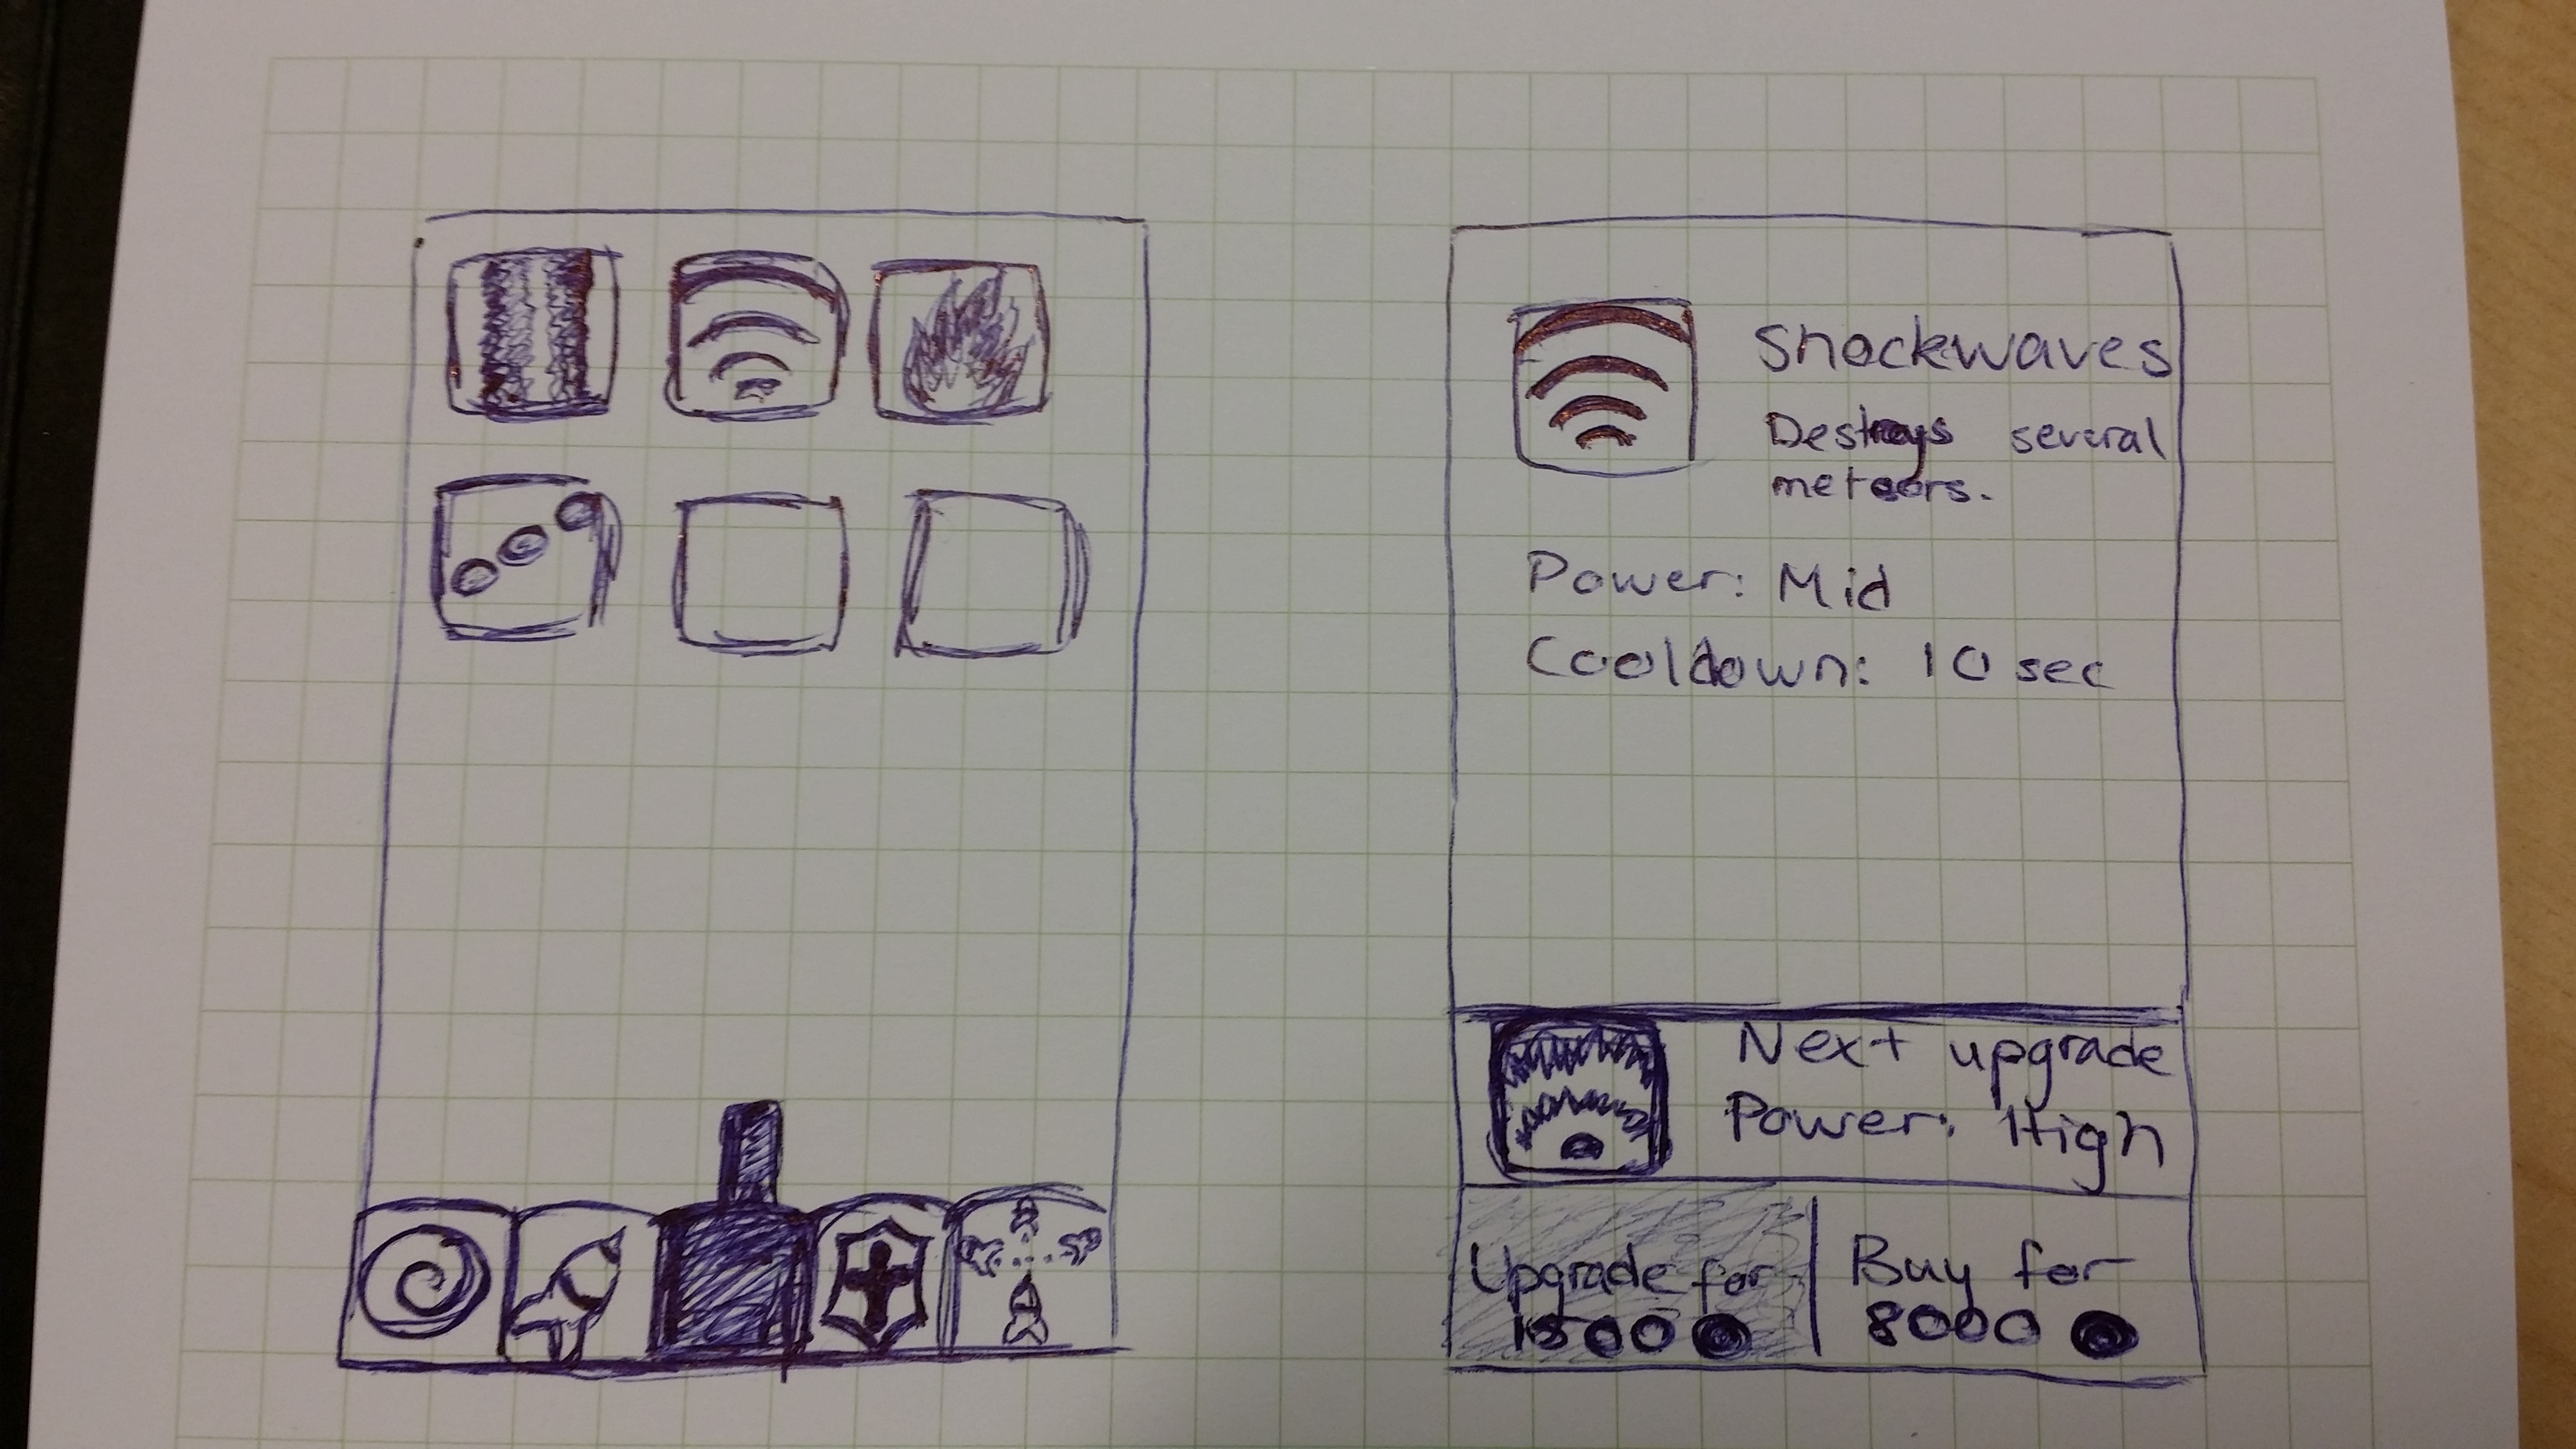 Shockwaves
Destroys several
meteors.
Power: Mid
Cooldown: 10 sec
Next upgrade
Power: High
Upgrade for
1500
Buy for
8000